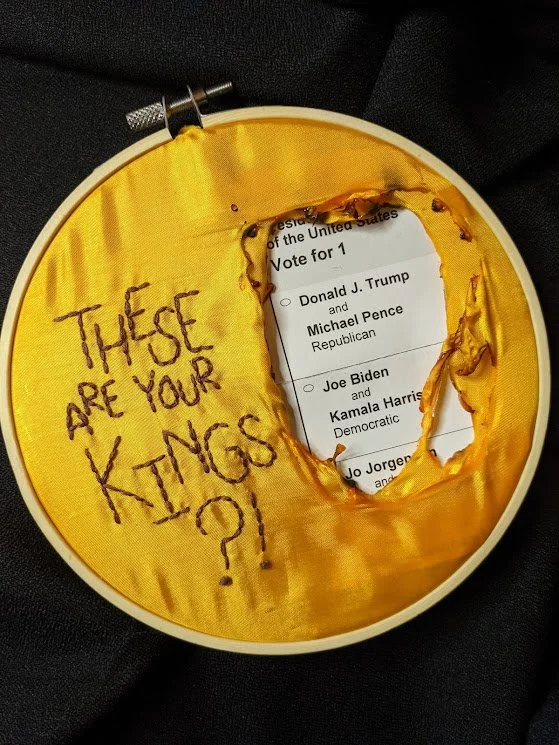 THESE
ARE YOUR
KINGS
?!
of the United States
Vote for 1
Donald J. Trump
and
Michael Pence
Republican
Joe Biden
and
Kamala Harris
Democratic
Jo Jorgen
and